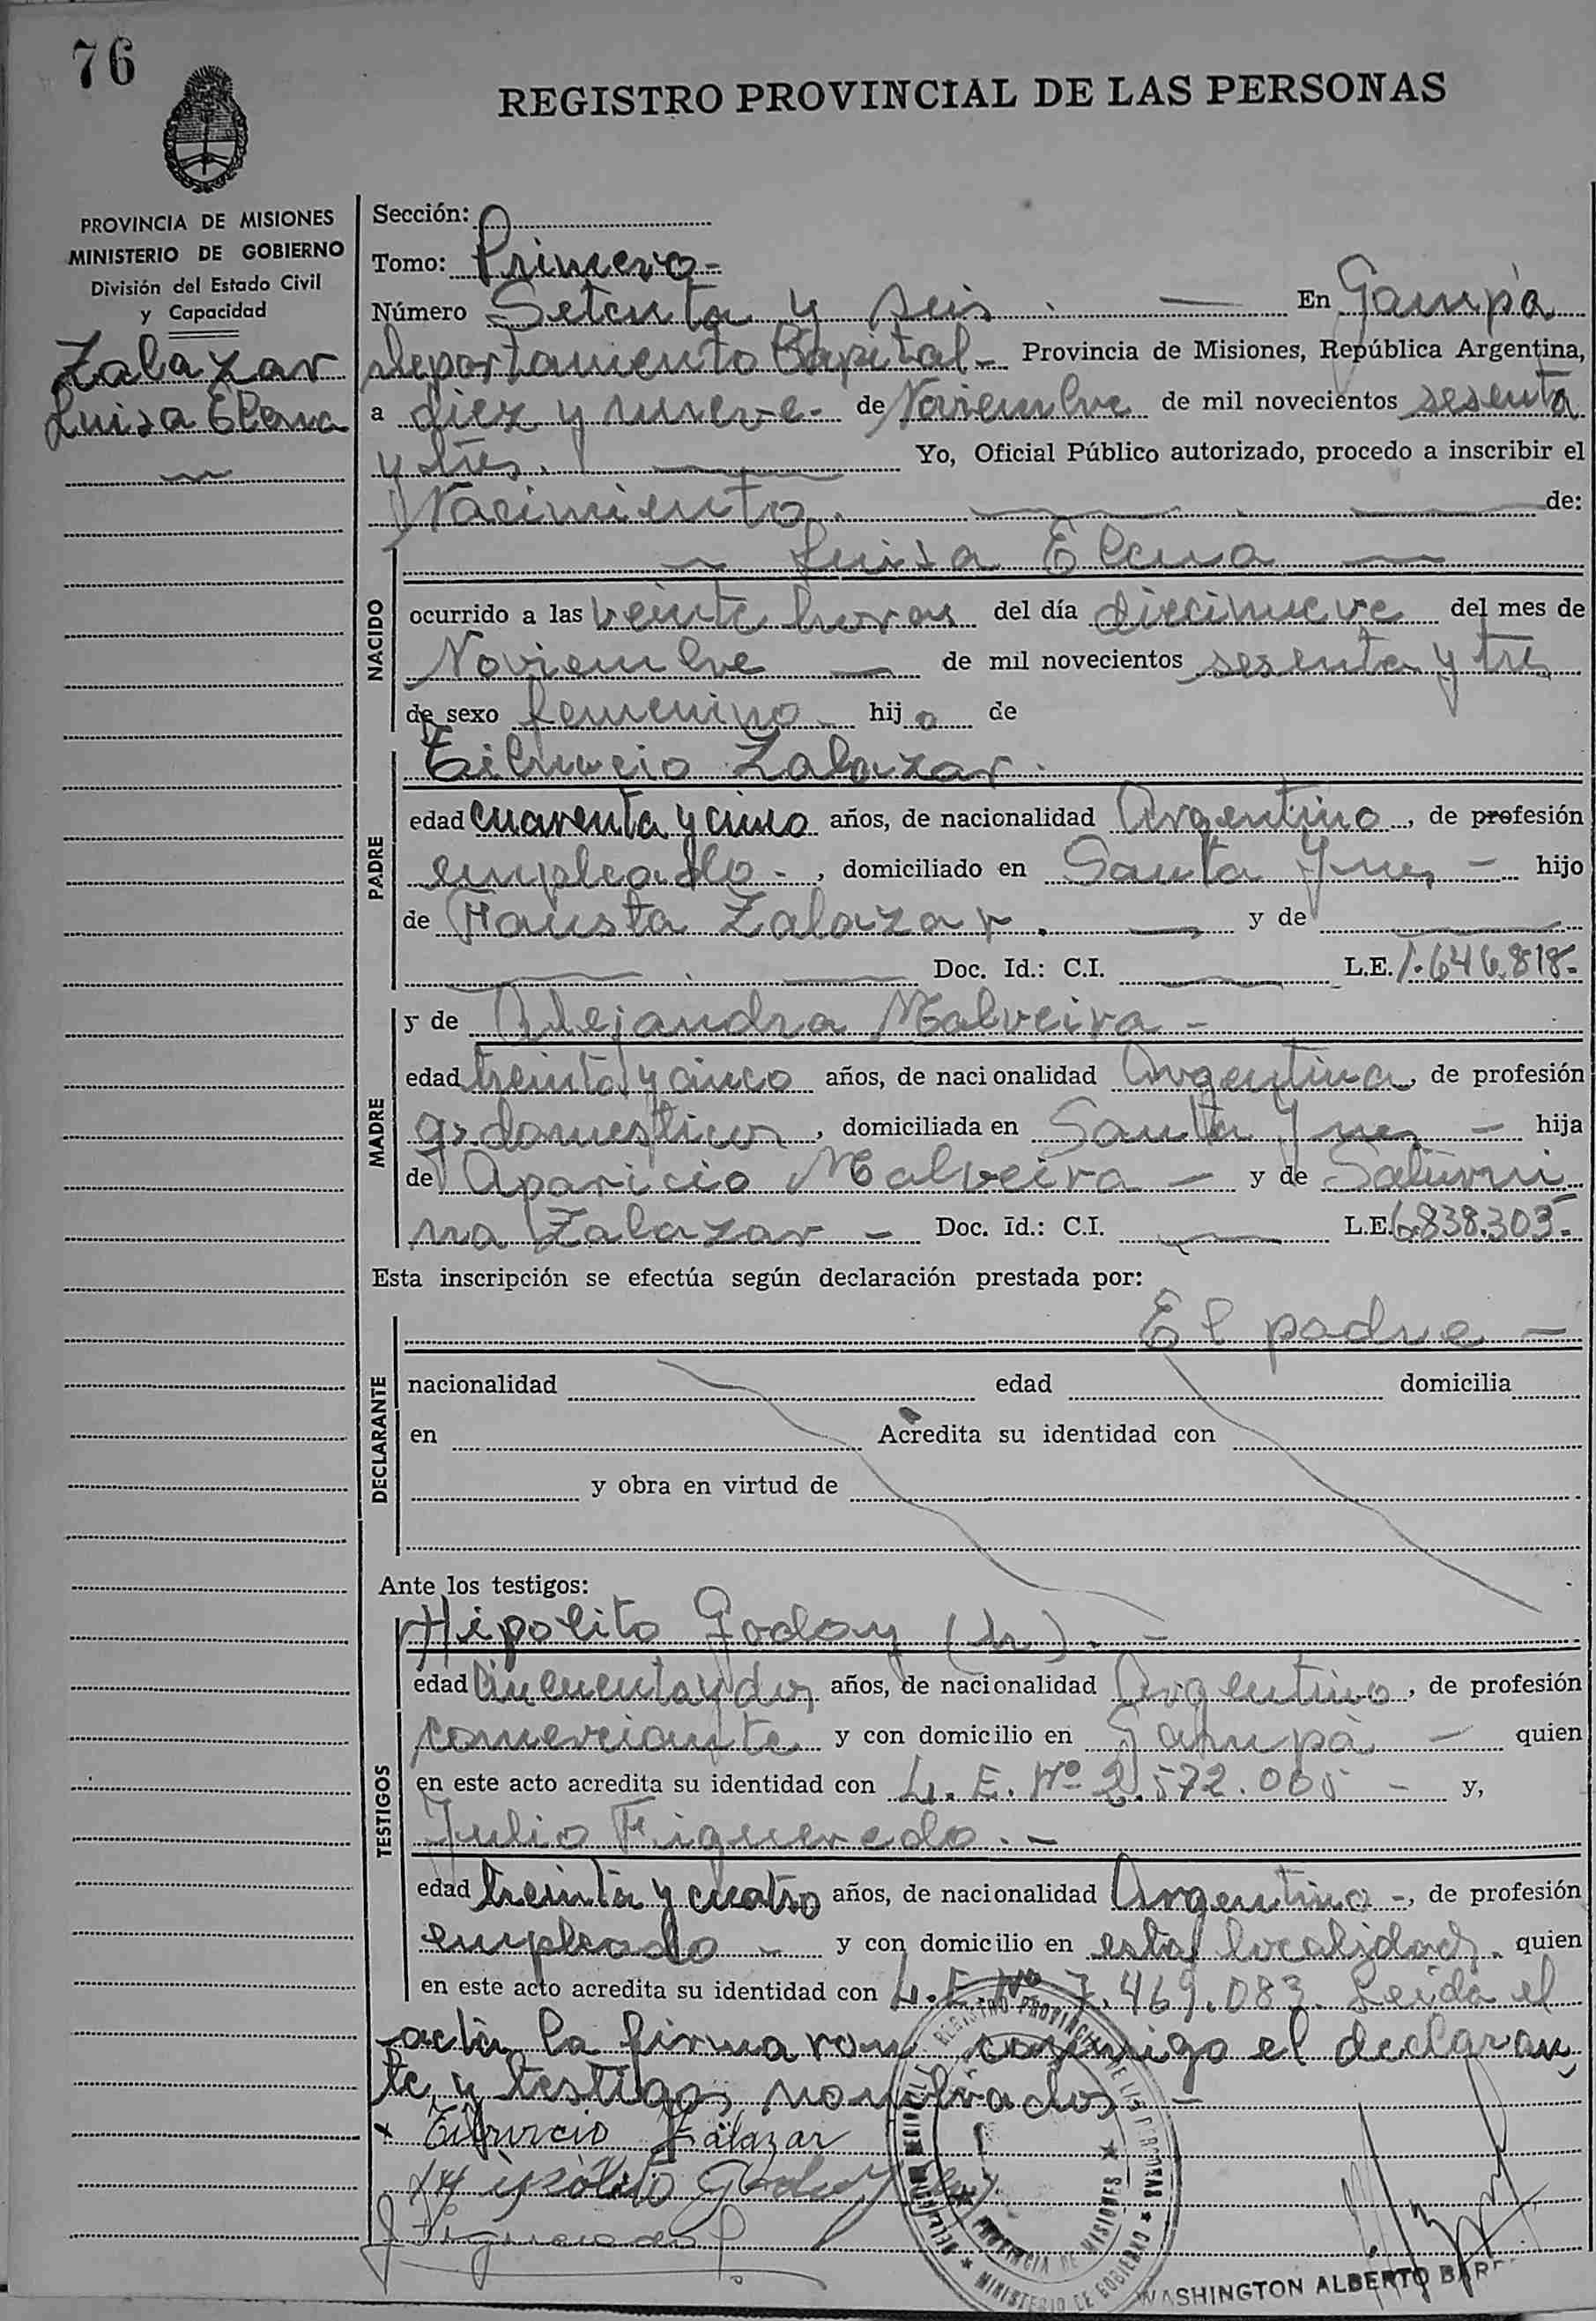 76
REGISTRO PROVINCIAL DE LAS PERSONAS
PROVINCIA DE MISIONES
MINISTERIO DE GOBIERNO
División del Estado Civil
y Capacidad
Zalazar
Luisa Elena
Sección:
Tomo: Primero -
Número Setenta y seis . — En Garupá
departamento Capital - Provincia de Misiones, República Argentina,
a diez y nueve - de Noviembre de mil novecientos sesenta
y tres. — Yo, Oficial Público autorizado, procedo a inscribir el
Nacimiento — de:
NACIDO
Luisa Elena
ocurrido a las veinte horas del día diecinueve del mes de
Noviembre — de mil novecientos sesenta y tres
de sexo femenino - hija de
PADRE
Tiburcio Zalazar.
edad cuarenta y cinco años, de nacionalidad Argentino, de profesión
empleado -, domiciliado en Santa Ynes - hijo
de Fausta Zalazar. — y de —
— Doc. Id.: C.I. — L.E. 1.646.818-
MADRE
y de Alejandra Malveira -
edad treinta y cinco años, de nacionalidad Argentina, de profesión
q. domesticos, domiciliada en Santa Ynes - hija
de Aparicio Malveira - y de Saturni
na Zalazar - Doc. Id.: C.I. — L.E. 6.838.303-
Esta inscripción se efectúa según declaración prestada por:
DECLARANTE
El padre -
nacionalidad edad domicilia
en Acredita su identidad con
y obra en virtud de
Ante los testigos:
TESTIGOS
Hipolito Godoy (h). -
edad cincuenta y dos años, de nacionalidad Argentino, de profesión
comerciante y con domicilio en Garupá - quien
en este acto acredita su identidad con L. E. Nº 2.572.005 - y,
Julio Figueredo. -
edad treinta y cuatro años, de nacionalidad Argentino -, de profesión
empleado - y con domicilio en esta localidad. quien
en este acto acredita su identidad con L. E. Nº 7.469.083. Leida el
acta la firmaron conmigo el declaran
te y testigos nombrados -
x Tiburcio Zalazar
Hipólito Godoy
J Figueredo
REGISTRO PROVINCIAL DE LAS PERSONAS
PROVINCIA DE MISIONES
MINISTERIO DE GOBIERNO
WASHINGTON ALBERTO